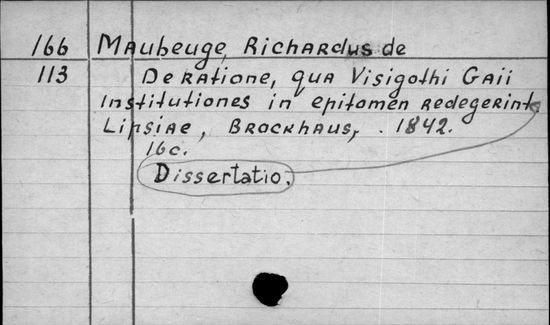 166 Maubeuge, Richardus de
113 De Ratione, qua Visigothi Gaii
Institutiones in epitomen redegerint
Lipsiae, Brockhaus, . 1842.
16c.
Dissertatio.